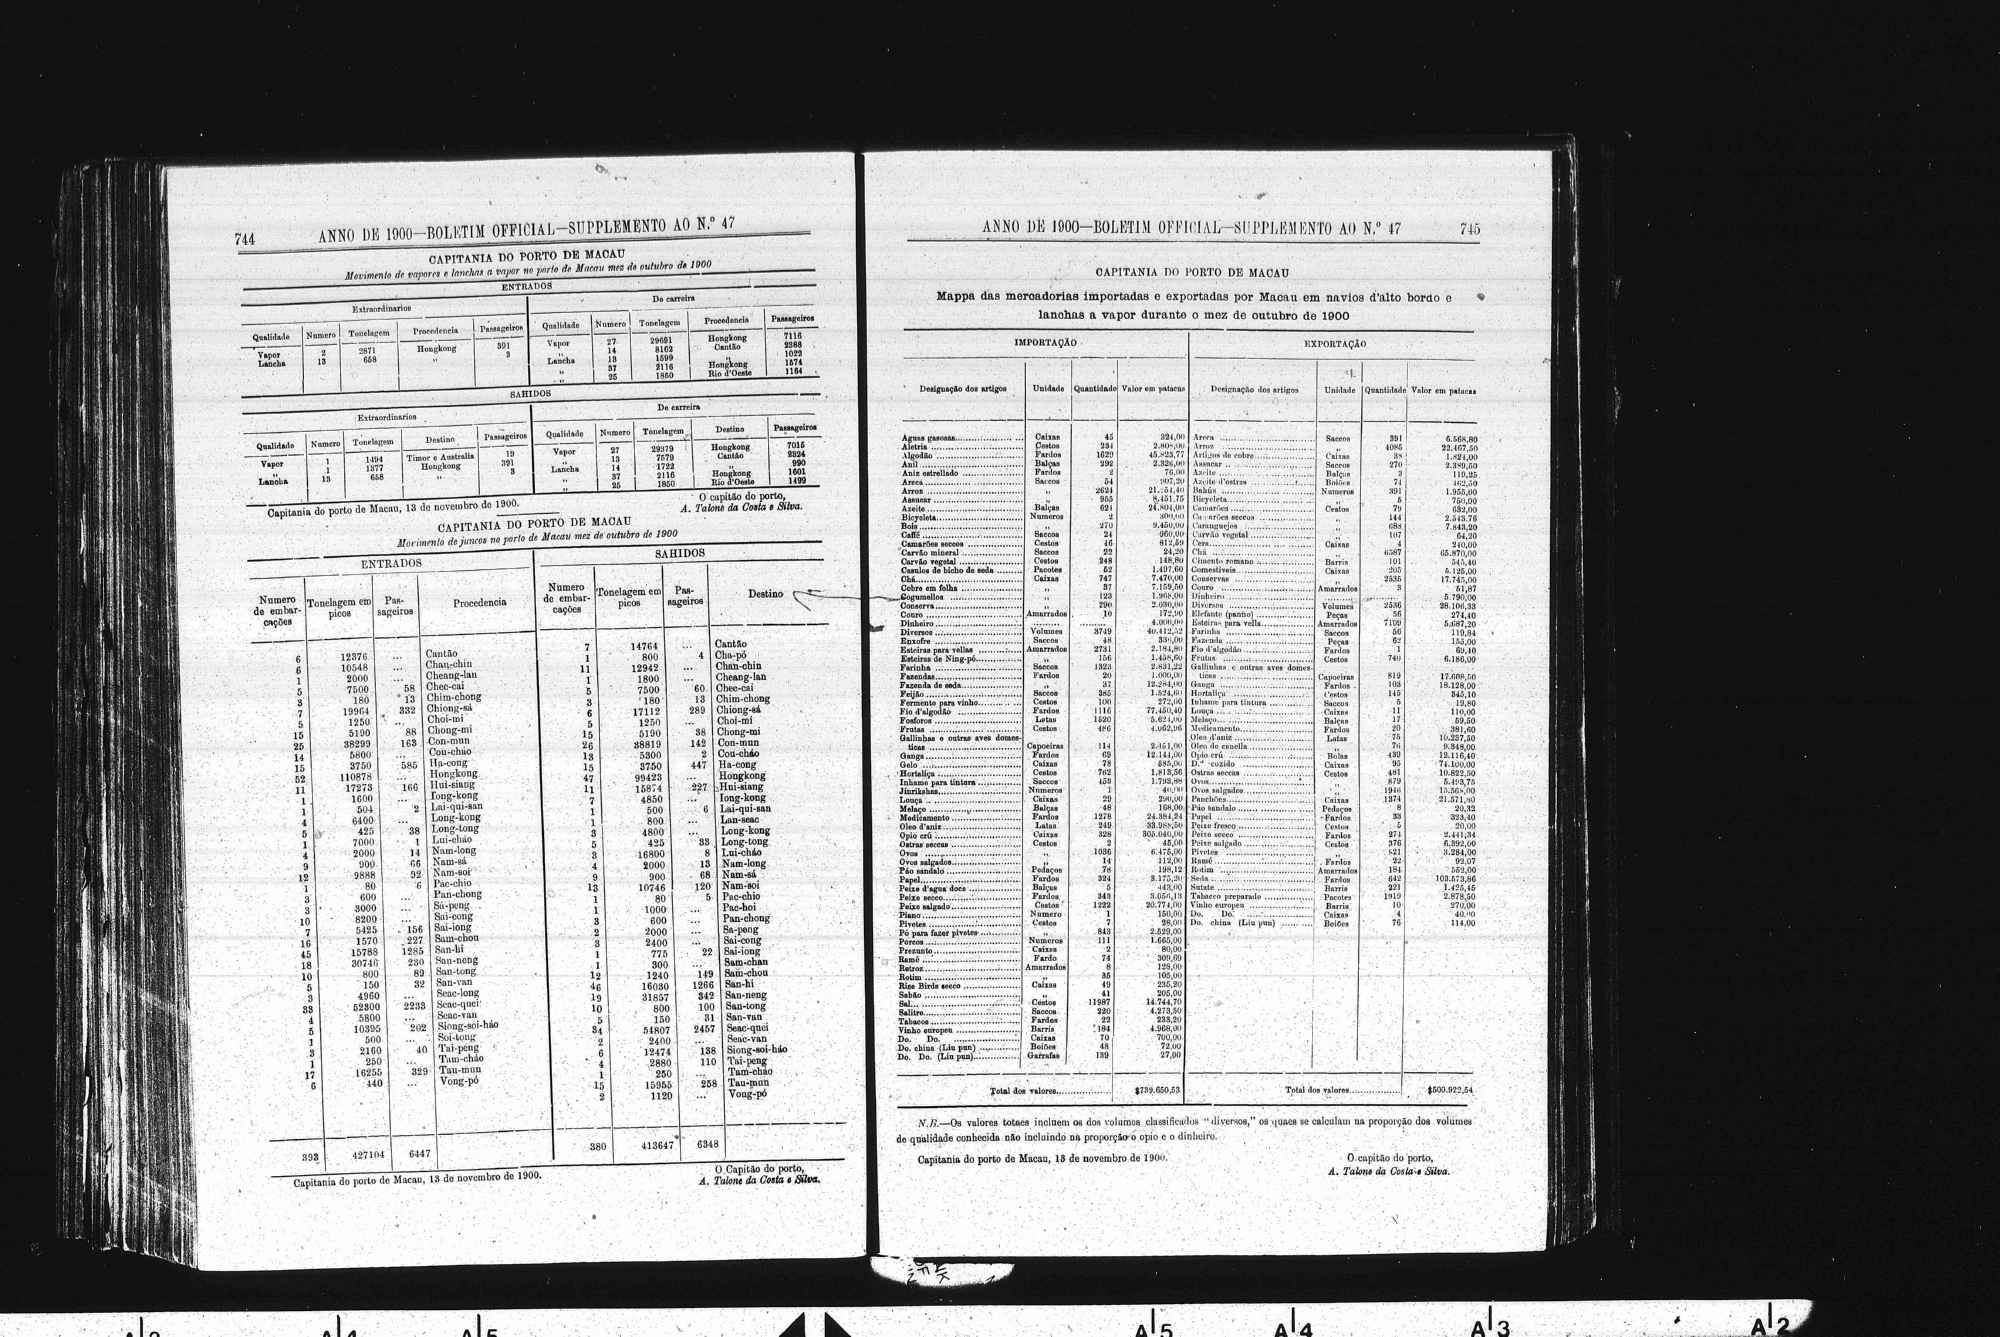 744 ANNO DE 1900—BOLETIM OFFICIAL—SUPPLEMENTO AO N.º 47
CAPITANIA DO PORTO DE MACAU
Movimento de vapores e lanchas a vapor no porto de Macau mez de outubro de 1900
ENTRADOS
Extraordinarios De carreira
Qualidade Numero Tonelagem Procedencia Passageiros Qualidade Numero Tonelagem Procedencia Passageiros
Vapor 2 2871 Hongkong 391 Vapor 27 29691 Hongkong 7116
Lancha 13 658 „ 3 „ 14 8162 Cantão 2388
Lancha 13 1599 „ 1022
„ 37 2116 Hongkong 1574
„ 25 1850 Rio d'Oeste 1164
SAHIDOS
Extraordinarios De carreira
Qualidade Numero Tonelagem Destino Passageiros Qualidade Numero Tonelagem Destino Passageiros
Vapor 1 1494 Timor e Australia 19 Vapor 27 29379 Hongkong 7015
1 1377 Hongkong 391 „ 13 7579 Cantão 2324
Lancha 13 658 „ 3 Lancha 14 1722 „ 990
„ 37 2116 Hongkong 1601
„ 25 1850 Rio d'Oeste 1499
Capitania do porto de Macau, 13 de novembro de 1900. O capitão do porto,
A. Talone da Costa e Silva.
CAPITANIA DO PORTO DE MACAU
Movimento de juncos no porto de Macau mez de outubro de 1900
ENTRADOS SAHIDOS
Numero de embarcações Tonelagem em picos Passageiros Procedencia Numero de embarcações Tonelagem em picos Passageiros Destino
6 12376 ... Cantão 7 14764 ... Cantão
6 10548 ... Chan-chin 1 800 4 Cha-pó
1 2000 ... Cheang-lan 11 12942 ... Chan-chin
5 7500 58 Chec-cai 1 1800 ... Cheang-lan
3 180 13 Chim-chong 5 7500 60 Chec-cai
7 19964 332 Chiong-sá 3 180 13 Chim-chong
5 1250 ... Choi-mi 6 17112 289 Chiong-sá
15 5190 88 Chong-mi 5 1250 ... Choi-mi
25 38299 163 Con-mun 15 5190 38 Chong-mi
14 5800 ... Cou-cháo 26 38819 142 Con-mun
15 3750 585 Ha-cong 13 5300 2 Cou-cháo
52 110878 ... Hongkong 15 3750 447 Ha-cong
11 17273 166 Hui-siang 47 99423 ... Hongkong
1 1600 ... Iong-kong 11 15874 227 Hui-siang
1 504 2 Lai-qui-san 7 4850 ... Iong-kong
4 6400 ... Long-kong 1 500 6 Lai-qui-san
5 425 38 Long-tong 1 800 ... Lan-seac
1 7000 1 Lui-cháo 3 4800 ... Long-kong
4 2000 14 Nam-long 5 425 33 Long-tong
9 900 66 Nam-sá 3 16800 8 Lui-cháo
12 9888 92 Nam-soi 4 2000 13 Nam-long
1 80 6 Pac-chio 9 900 68 Nam-sá
3 600 ... Pan-chong 13 10746 120 Nam-soi
3 3000 ... Sá-peng 1 80 5 Pac-chio
10 8200 ... Sai-cong 1 1000 ... Pac-hoi
7 5425 156 Sai-iong 3 600 ... Pan-chong
16 1570 227 Sam-chou 2 2000 ... Sa-peng
45 15788 1285 San-hi 3 2400 ... Sai-cong
18 30746 230 San-neng 1 775 22 Sai-iong
10 800 89 San-tong 1 300 ... Sam-chan
5 150 32 San-van 12 1240 149 Sam-chou
3 4960 ... Seac-long 46 16030 1266 San-hi
33 52300 2233 Seac-quei 19 31857 342 San-neng
4 5800 ... Seac-van 10 800 100 San-tong
5 10395 202 Siong-soi-háo 5 150 31 San-van
1 500 ... Soi-tong 34 54807 2457 Seac-quei
3 2160 40 Tai-peng 2 2400 ... Seac-van
1 250 ... Tam-cháo 6 12474 138 Siong-soi-háo
17 16255 329 Tau-mun 4 2880 110 Tai-peng
6 440 ... Vong-pó 1 250 ... Tam-cháo
15 15955 258 Tau-mun
2 1120 ... Vong-pó
393 427104 6447 380 413647 6348
Capitania do porto de Macau, 13 de novembro de 1900. O Capitão do porto,
A. Talone da Costa e Silva.
ANNO DE 1900—BOLETIM OFFICIAL—SUPPLEMENTO AO N.º 47 745
CAPITANIA DO PORTO DE MACAU
Mappa das mercadorias importadas e exportadas por Macau em navios d'alto bordo e
lanchas a vapor durante o mez de outubro de 1900
IMPORTAÇÃO EXPORTAÇÃO
Designação dos artigos Unidade Quantidade Valor em patacas Designação dos artigos Unidade Quantidade Valor em patacas
Aguas gasosas Caixas 45 324,00 Areca Saccos 391 6.568,80
Aletria Cestos 234 2.808,00 Arroz „ 4085 22.467,50
Algodão Fardos 1629 45.823,77 Artigos de cobre Caixas 38 1.824,00
Anil Balças 292 2.326,00 Assucar Saccos 270 2.389,50
Aniz estrellado Fardos 2 76,00 Azeite Balças 3 119,25
Areca Saccos 54 907,20 Azeite d'ostras Boiões 74 462,50
Arroz „ 2624 Bahús Numeros 391 1.955,00
Assucar „ 955 8.451,75 Bicycleta „ 5 750,00
Azeite Balças 621 24.804,00 Camarões Cestos 79 632,00
Bicycleta Numeros 2 300,00 Camarões seccos „ 144 2.543,76
Bois „ 270 9.450,00 Caranguejos „ 688 7.843,20
Caffé Saccos 24 960,00 Carvão vegetal „ 107 64,20
Camarões seccos Cestos 46 812,59 Cera Caixas 4 240,00
Carvão mineral Saccos 22 24,20 Chá „ 6587 65.870,00
Carvão vegetal Cestos 248 148,80 Cimento romano Barris 101 545,40
Casulos de bicho de seda Pacotes 52 1.497,60 Comestiveis Caixas 205 5.125,00
Chá Caixas 747 7.470,00 Conservas „ 2535 17.745,00
Cobre em folha „ 37 7.159,50 Couro Amarrados 3 51,87
Cogumellos „ 123 1.968,00 Dinheiro 5.790,00
Conserva „ 290 2.030,00 Diversos Volumes 2536 28.106,33
Couro Amarrados 10 172,90 Elefante (panno) Peças 56 274,40
Dinheiro 4.000,00 Esteiras para vella Amarrados 7109 5.687,20
Diversos Volumes 3749 40.412,52 Farinha Saccos 56 119,84
Enxofre Saccos 48 336,00 Fazenda Peças 62 155,00
Esteiras para vellas Amarrados 2731 2.184,80 Fio d'algodão Fardos 1 69,40
Esteiras de Ning-pó „ 156 1.458,60 Frutas Cestos 740 6.186,00
Farinha Saccos 1323 2.831,22 Gallinhas e outras aves domes-
Fazendas Fardos 20 1.000,00 ticas Capoeiras 819 17.608,50
Fazenda de seda „ 37 12.284,00 Ganga Fardos 103 18.128,00
Feijão Saccos 385 1.824,60 Hortaliça Cestos 145 345,10
Fermento para vinho Cestos 100 272,00 Inhame para tintura Saccos 5 19,80
Fio d'algodão Fardos 1116 77.450,40 Louça Caixas 11 110,00
Fosforos Latas 1520 5.624,00 Melaço Balças 17 59,50
Frutas Cestos 486 4.062,96 Medicamento Fardos 20 381,60
Gallinhas e outras aves domes- Oleo d'aniz Latas 75 10.237,50
ticas Capoeiras 114 2.451,00 Oleo de canella „ 76 9.348,00
Ganga Fardos 69 12.144,00 Opio crú Bolas 439 12.116,40
Gelo Caixas 78 585,00 D.º cozido Caixas 95 74.100,00
Hortaliça Cestos 762 1.813,56 Ostras seccas Cestos 481 10.822,50
Inhame para tintura Saccos 453 1.793,88 Ovos „ 879 5.493,75
Jinrikshas Numeros 1 40,00 Ovos salgados „ 1946 15.568,00
Louça Caixas 29 290,00 Panchões Caixas 1374 21.571,80
Melaço Balças 48 168,00 Páo sandalo Pedaços 8 20,32
Medicamento Fardos 1278 24.384,24 Papel Fardos 33 323,40
Oleo d'aniz Latas 249 33.988,50 Peixe fresco Cestos 5 20,00
Opio crú Caixas 328 305.040,00 Peixe secco Fardos 274 2.441,34
Ostras seccas Cestos 2 45,00 Peixe salgado Cestos 376 6.392,00
Ovos „ 1036 6.475,00 Pivetes „ 821 3.284,00
Ovos salgados „ 14 112,00 Ramê Fardos 22 92,07
Páo sandalo Pedaços 78 198,12 Rotim Amarrados 184 552,00
Papel Fardos 324 3.175,20 Seda Fardos 642 103.573,86
Peixe d'agua doce Balças 5 443,00 Sutate Barris 221 1.425,45
Peixe secco Fardos 343 3.056,13 Tabacco preparado Pacotes 1919 2.878,50
Peixe salgado Cestos 1222 20.774,00 Vinho europeu Barris 10 270,00
Piano Numero 1 150,00 Do. Do. Caixas 4 40,00
Pivetes Cestos 7 28,00 Do. china (Liu pun) Boiões 76 114,00
Pó para fazer pivetes „ 843 2.529,00
Porcos Numeros 111 1.665,00
Prezunto Caixas 2 80,00
Ramê Fardo 74 309,69
Retroz Amarrados 8 128,00
Rotim „ 35 105,00
Rice Birds secco Caixas 49 235,20
Sabão „ 41 205,00
Sal Cestos 11987 14.744,70
Salitre Saccos 220 4.273,50
Tabacos Fardos 22 233,20
Vinho europeu Barris 184 4.968,00
Do. Do. Caixas 70 700,00
Do. china (Liu pun) Boiões 48 72,00
Do. Do. (Liu pun) Garrafas 139 27,00
Total dos valores $739.650,53 Total dos valores $500.922,54
N.B.—Os valores totaes incluem os dos volumes classificados "diversos," os quaes se calculam na proporção dos volumes
de qualidade conhecida não incluindo na proporção o opio e o dinheiro.
Capitania do porto de Macau, 13 de novembro de 1900. O capitão do porto,
A. Talone da Costa e Silva.
A 5 A 4 A 3 A 2